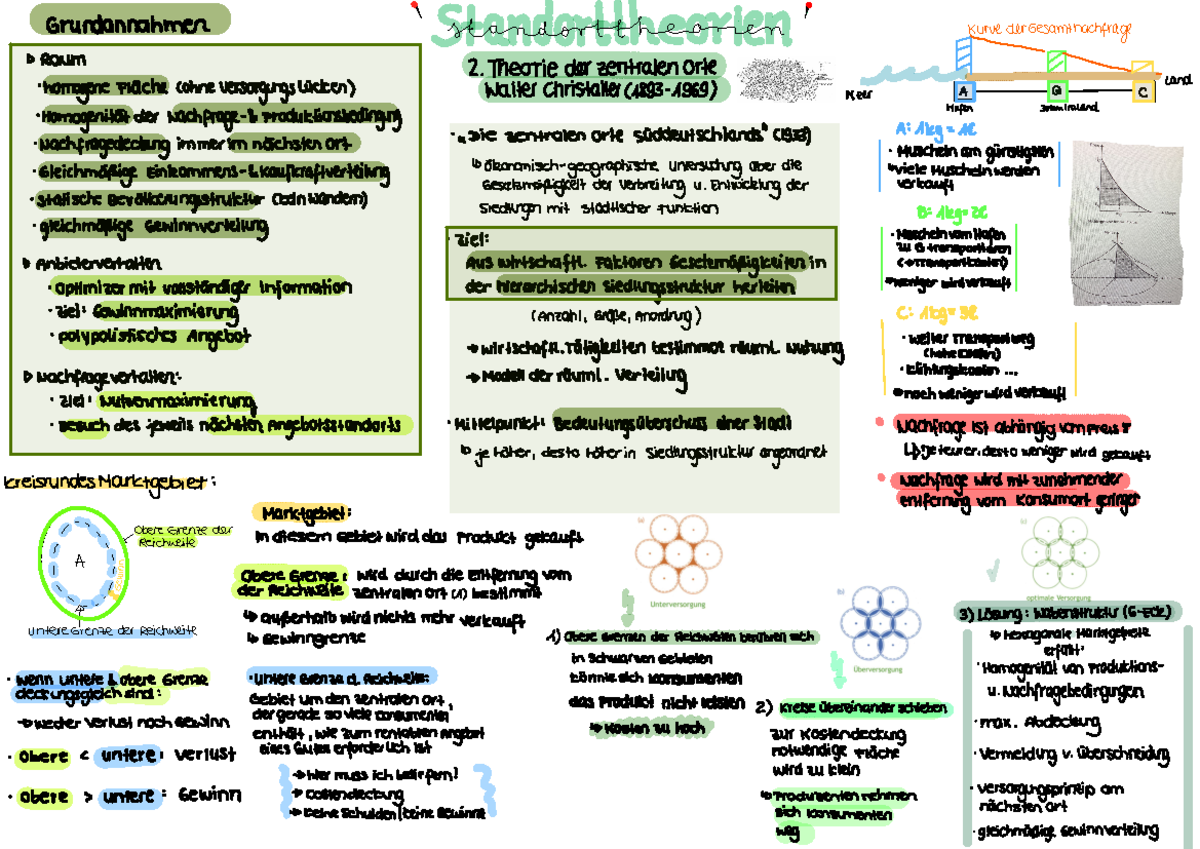 Grundannahmen
Raum
· homogene Fläche (ohne Versorgungslücken)
· Homogenität der Nachfrage- & Produktionsbedingung
· Nachfragedeckung immer im nächsten Ort
· Gleichmäßige Einkommens- & Kaufkraftverteilung
· statische Bevölkerungsstruktur (kein Wandern)
· gleichmäßige Gewinnverteilung
Anbieterverhalten
· Optimizer mit vollständiger Information
· Ziel: Gewinnmaximierung
· polypolistisches Angebot
Nachfrageverhalten:
· Ziel: Nutzenmaximierung
· Besuch des jeweils nächsten Angebotsstandorts
Standorttheorien
standorttheorien
2. Theorie der zentralen Orte
Walter Christaller (1893-1969)
· „Die zentralen Orte Süddeutschlands" (1933)
↳ Ökonomisch-geographische Untersuchung über die
Gesetzmäßigkeit der Verbreitung u. Entwicklung der
Siedlungen mit städtischer Funktion
· Ziel:
Aus wirtschaftl. Faktoren Gesetzmäßigkeiten in
der hierarchischen Siedlungsstruktur herleiten
(Anzahl, Größe, Anordnung)
→ wirtschaftl. Tätigkeiten bestimmt räuml. Nutzung
→ Modell der räuml. Verteilung
· Mittelpunkt: Bedeutungsüberschuss einer Stadt
↳ je höher, desto höher in Siedlungsstruktur angeordnet
Kurve der Gesamtnachfrage
Meer
A
B
C
Land
Hafen
A: 1kg = 1€
· Muscheln am günstigsten
↳ viele Muscheln werden
verkauft
B: 1kg = 2€
· Muscheln vom Hafen
zu B transportieren
(→Transportkosten)
→ weniger wird verkauft
C: 1kg = 3€
· weiter Transportweg
(hohe Kosten)
· Kühlungskosten ...
→ noch weniger wird verkauft
Nachfrage ist abhängig vom Preis
↳ je teurer, desto weniger wird gekauft
Nachfrage wird mit zunehmender
entfernung vom Konsumort geringer
kreisrundes Marktgebiet:
Obere Grenze der
Reichweite
A
Gewinn
untere Grenze der Reichweite
Marktgebiet:
In diesem Gebiet wird das Produkt gekauft
Obere Grenze: wird durch die Entfernung vom
der Reichweite zentralen Ort (A) bestimmt
↳ außerhalb wird nichts mehr verkauft
↳ Gewinngrenze
· wenn untere & obere Grenze
deckungsgleich sind:
→ weder Verlust noch Gewinn
· Obere < untere: Verlust
· Obere > untere: Gewinn
· Untere Grenze d. Reichweite:
Gebiet um den zentralen Ort,
der gerade so viele Konsumenten
enthält, wie zum rentablen Angebot
eines Gutes erforderlich ist
→ Hier muss ich beliefern!
→ Kostendeckung
→ keine Schulden/keine Gewinne
Unterversorgung
1) Obere Grenzen der Reichweiten berühren sich
in schwarzen Gebieten
könnte sich Konsumenten
das Produkt nicht leisten
↳ Kosten zu hoch
b)
Überversorgung
2) Kreise übereinander schieben
zur Kostendeckung
notwendige Fläche
wird zu klein
↳ Produzenten nehmen
sich Konsumenten
weg
optimale Versorgung
3) Lösung: Wabenstruktur (6-Eck)
↳ Hexagonale Marktgebiete
erfüllt:
· Homogenität von Produktions-
u. Nachfragebedingungen
· max. Abdeckung
· Vermeidung v. Überschneidung
· Versorgungsprinzip am
nächsten Ort
· gleichmäßige Gewinnverteilung